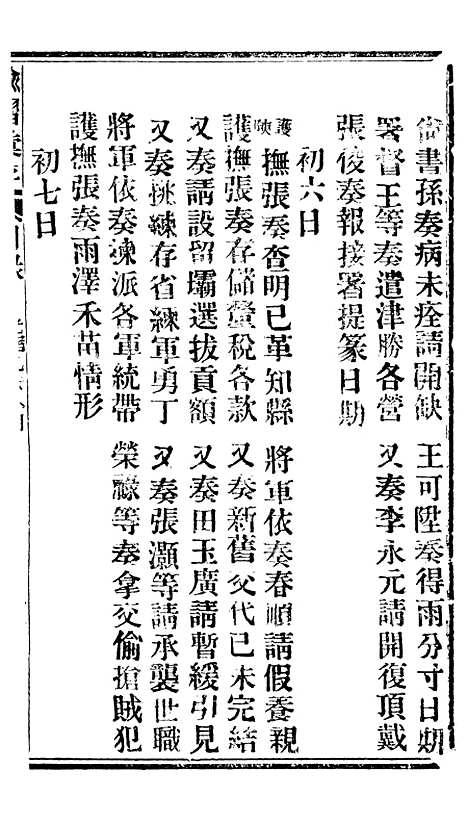 尙書孫奏病未痊請開缺　王可陞奏得雨分寸日期
署督王等奏遣津勝各營　又奏李永元請開復頂戴
張俊奏報接署提篆日期
初六日
護陝撫張奏查明已革知縣　將軍依奏春順請假養親
護撫張奏存儲釐稅各款　又奏新舊交代已未完結
又奏請設留壩選拔貢額　又奏田玉廣請暫緩引見
又奏挑練存省練軍勇丁　又奏張灝等請承襲世職
將軍依奏揀派各軍統帶　榮祿等奏拿交偷搶賊犯
護撫張奏雨澤禾苗情形
初七日